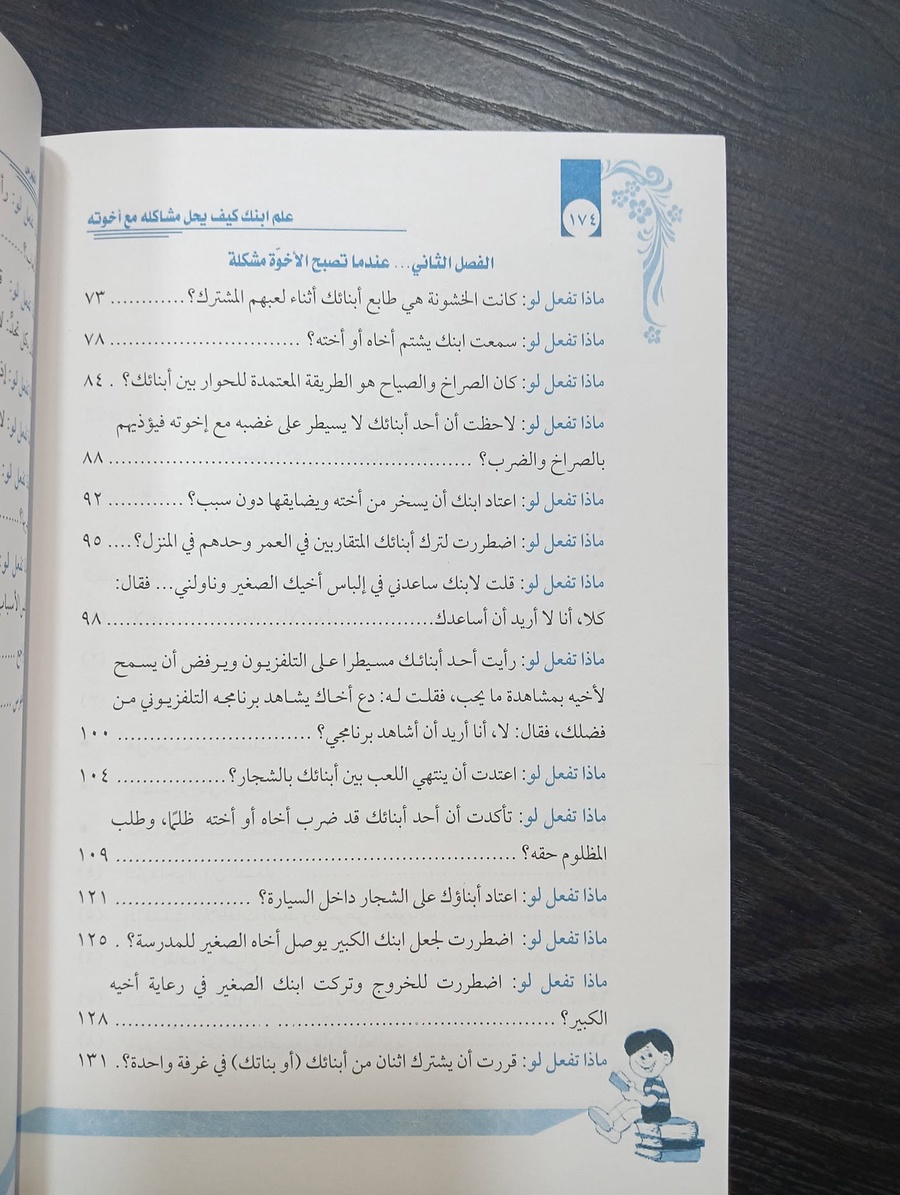 ١٧٤
علم ابنك كيف يحل مشاكله مع أخوته
الفصل الثاني... عندما تصبح الأخوّة مشكلة
ماذا تفعل لو: كانت الخشونة هي طابع أبنائك أثناء لعبهم المشترك؟ ............ ٧٣
ماذا تفعل لو: سمعت ابنك يشتم أخاه أو أخته؟ .............................. ٧٨
ماذا تفعل لو: كان الصراخ والصياح هو الطريقة المعتمدة للحوار بين أبنائك؟ . ٨٤
ماذا تفعل لو: لاحظت أن أحد أبنائك لا يسيطر على غضبه مع إخوته فيؤذيهم
بالصراخ والضرب؟ ......................................................... ٨٨
ماذا تفعل لو: اعتاد ابنك أن يسخر من أخته ويضايقها دون سبب؟ ............ ٩٢
ماذا تفعل لو: اضطررت لترك أبنائك المتقاربين في العمر وحدهم في المنزل؟.... ٩٥
ماذا تفعل لو: قلت لابنك ساعدني في إلباس أخيك الصغير وناولني... فقال:
كلا، أنا لا أريد أن أساعدك................................................... ٩٨
ماذا تفعل لو: رأيت أحد أبنائك مسيطرا على التلفزيون ويرفض أن يسمح
لأخيه بمشاهدة ما يحب، فقلت له: دع أخاك يشاهد برنامجه التلفزيوني من
فضلك، فقال: لا، أنا أريد أن أشاهد برنامجي؟ .............................. ١٠٠
ماذا تفعل لو: اعتدت أن ينتهي اللعب بين أبنائك بالشجار؟ ................. ١٠٤
ماذا تفعل لو: تأكدت أن أحد أبنائك قد ضرب أخاه أو أخته ظلمًا، وطلب
المظلوم حقه؟ .............................................................. ١٠٩
ماذا تفعل لو: اعتاد أبناؤك على الشجار داخل السيارة؟ ..................... ١٢١
ماذا تفعل لو: اضطررت لجعل ابنك الكبير يوصل أخاه الصغير للمدرسة؟ . ١٢٥
ماذا تفعل لو: اضطررت للخروج وتركت ابنك الصغير في رعاية أخيه
الكبير؟ .................................................................... ١٢٨
ماذا تفعل لو: قررت أن يشترك اثنان من أبنائك (أو بناتك) في غرفة واحدة؟. ١٣١